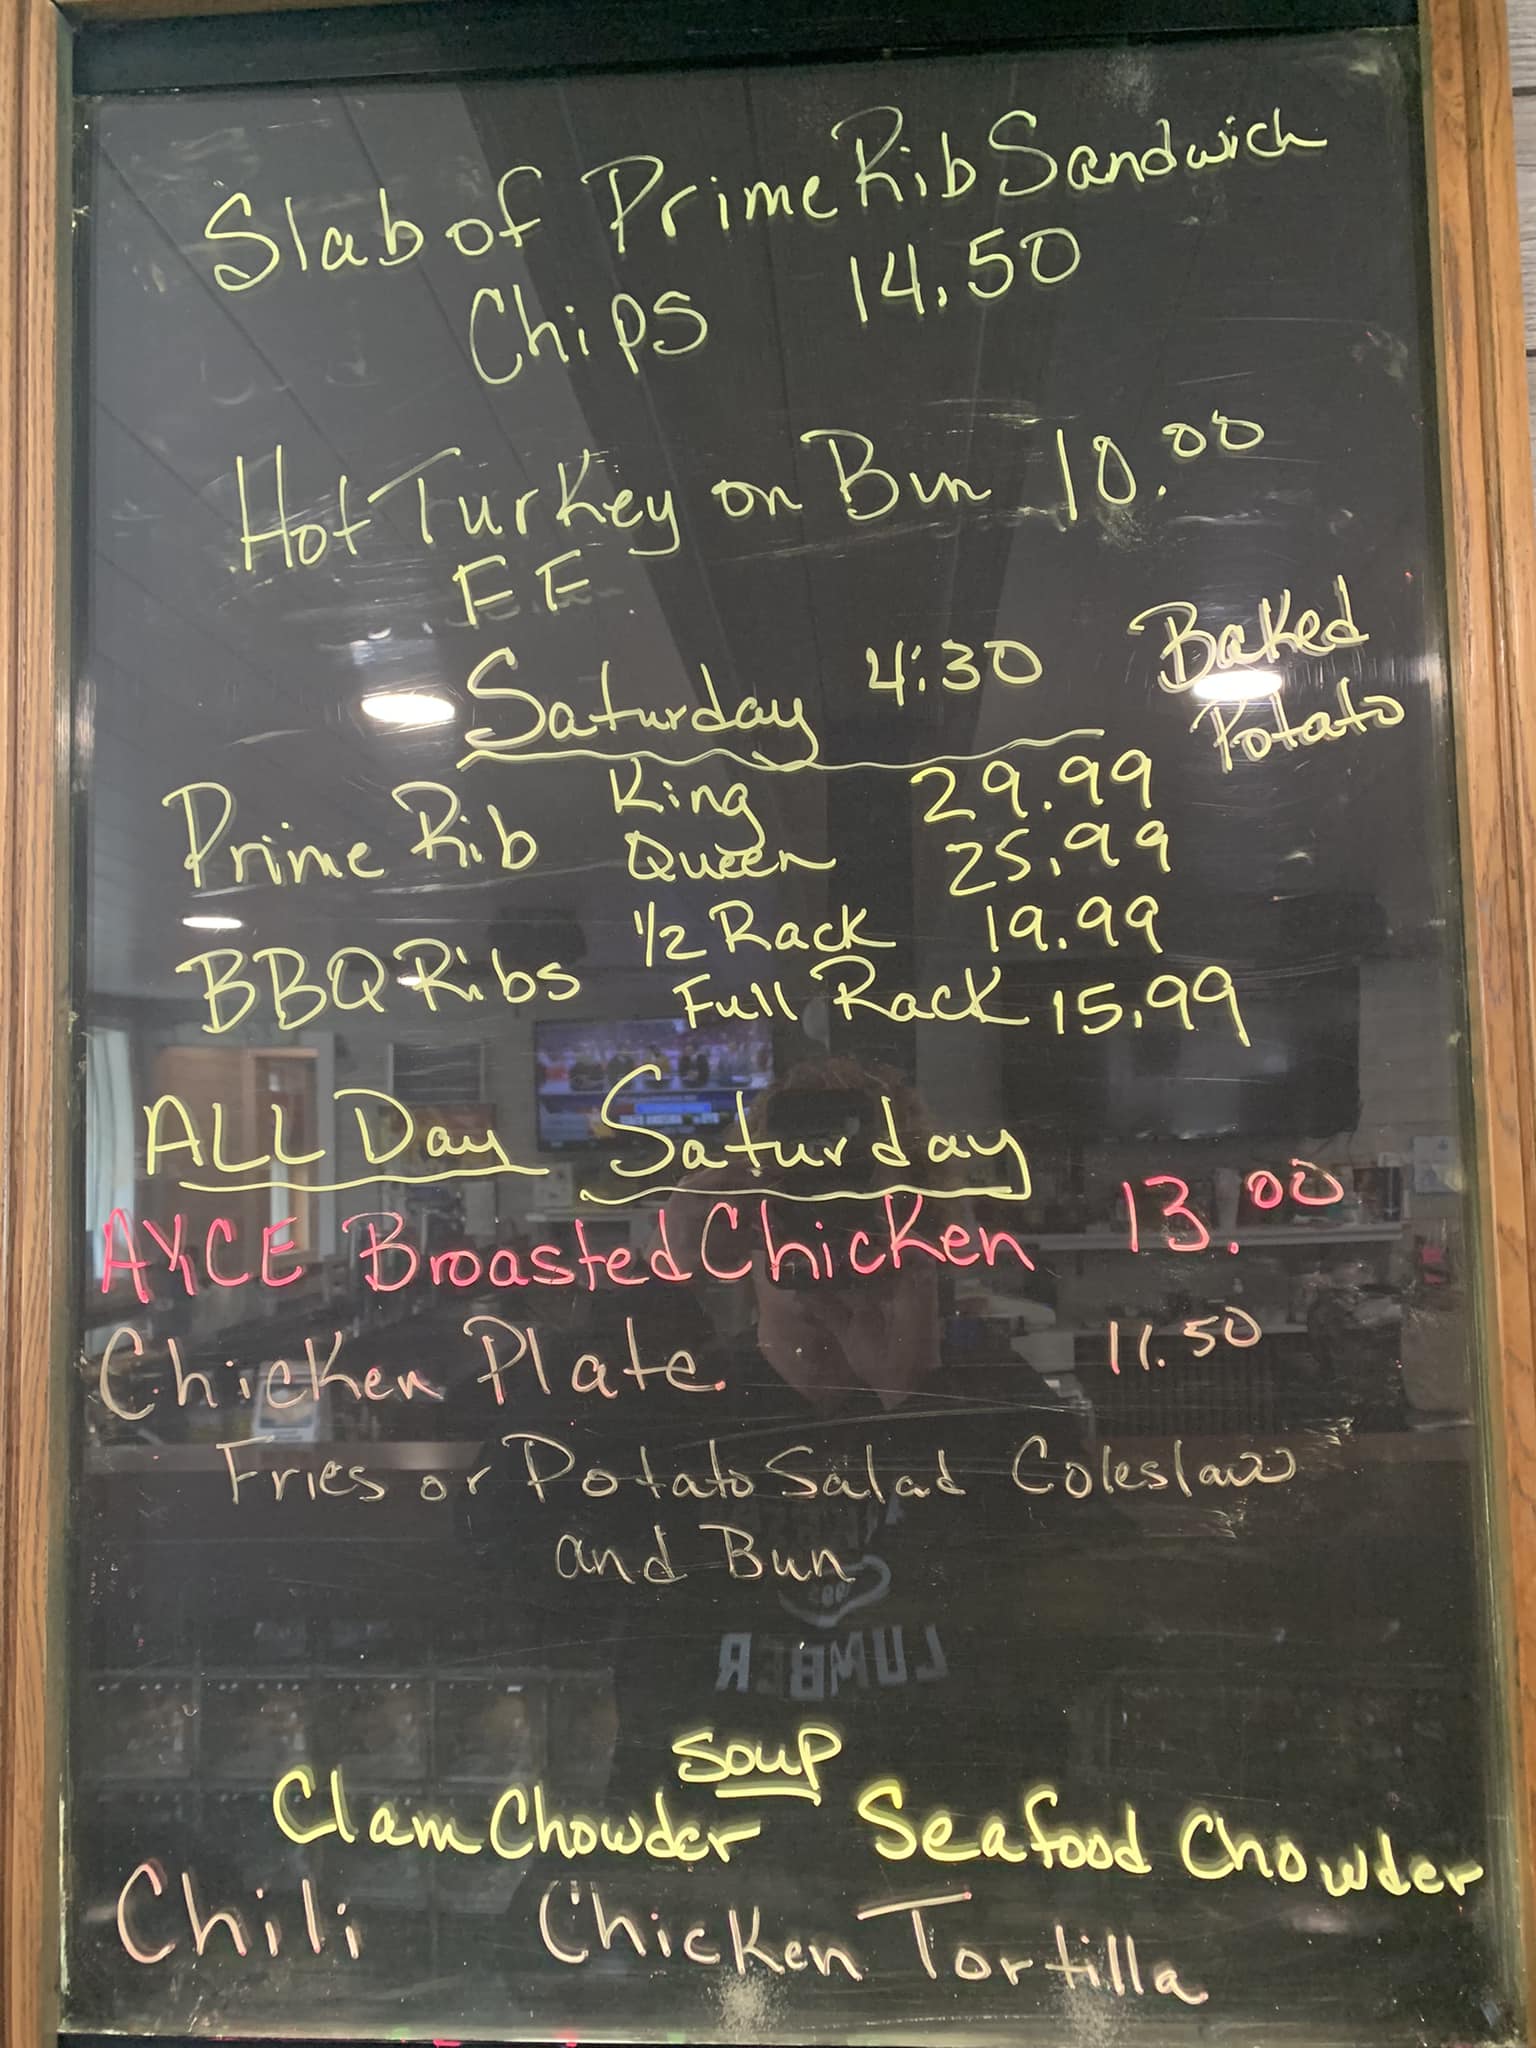 Slab of Prime Rib Sandwich
Chips 14.50
Hot Turkey on Bun 10.00
F.F.
Saturday 4:30
Baked
Potato
Prime Rib King 29.99
Queen 25.99
BBQ Ribs 1/2 Rack 19.99
Full Rack 15.99
ALL Day Saturday
AYCE Broasted Chicken 13.00
Chicken Plate 11.50
Fries or Potato Salad Coleslaw
and Bun
LUMBER
Soup
Clam Chowder Seafood Chowder
Chili Chicken Tortilla